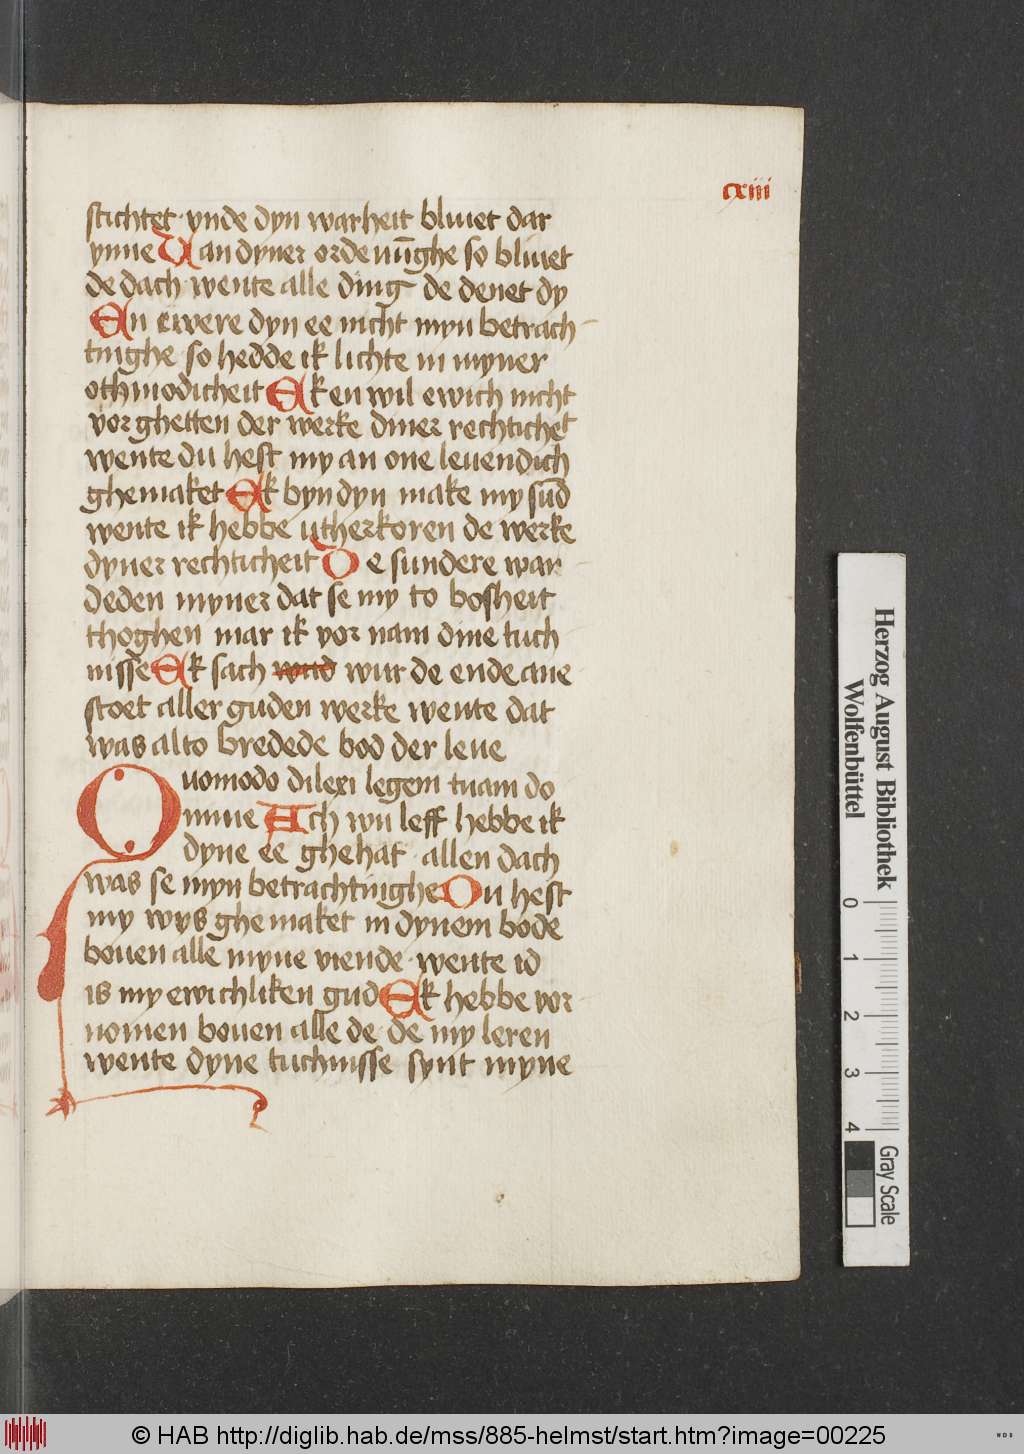 cxiii
stichtet vnde dyn warheit bliuet dar
ynne Van dyner ordenūghe so bliuet
de dach wente alle ding de denet dy
En were dyn ee nicht myn betrach
tinghe so hedde ik lichte in myner
othmodicheit Ek en wil ewich nicht
vorghetten der werke diner rechtichet
wente du hest my an one leuendich
ghemaket Ek byn dyn make my sūd
wente ik hebbe utherkoren de werke
dyner rechticheit De sundere war
deden myner dat se my to bosheit
thoghen mar ik vornam dine tuch
nisse Ek sach wur de ende ane
stoet aller guden werke wente dat
was alto bredede bod der leue
Quomodo dilexi legem tuam do
mine Ach wu leff hebbe ik
dyne ee ghehat allen dach
was se myn betrachtinghe Du hest
my wys ghemaket in dynem bode
bouen alle myne viende wente id
is my ewichliken gud Ek hebbe vor
nomen bouen alle de de my leren
wente dyne tuchnisse synt myne
Herzog August Bibliothek
Wolfenbüttel
0 1 2 3 4
Gray Scale
© HAB http://diglib.hab.de/mss/885-helmst/start.htm?image=00225